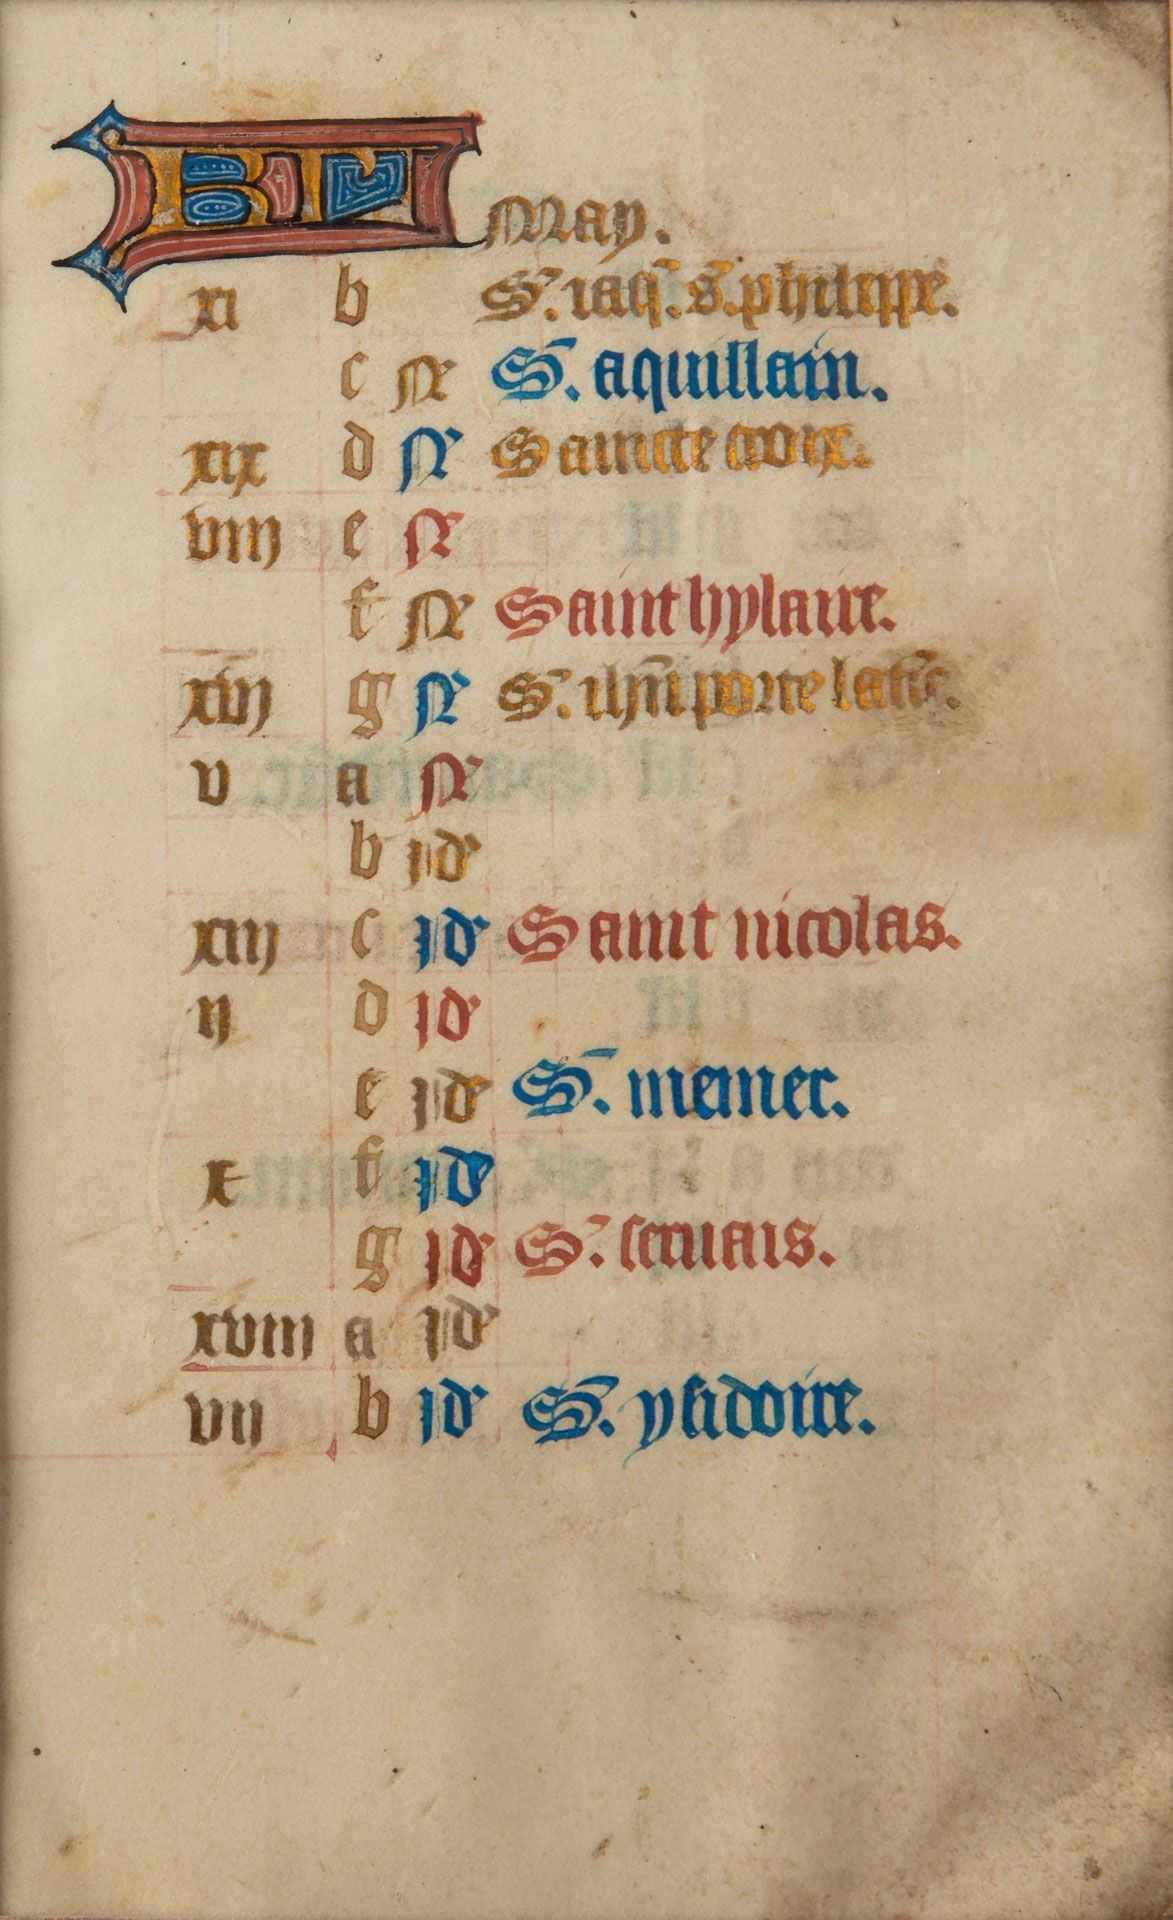 KL May.
xi b S. iaq. s. philippe.
c N S. aquillain.
xix d N Saincte croix.
viii e N
f N Saint hylaire.
xvi g N S. ihn porte latic.
v a N
b id
xiii c id Saint nicolas.
ii d id
e id S. memer.
x f id
g id S. seruais.
xviii a id
vii b id S. ysidoire.